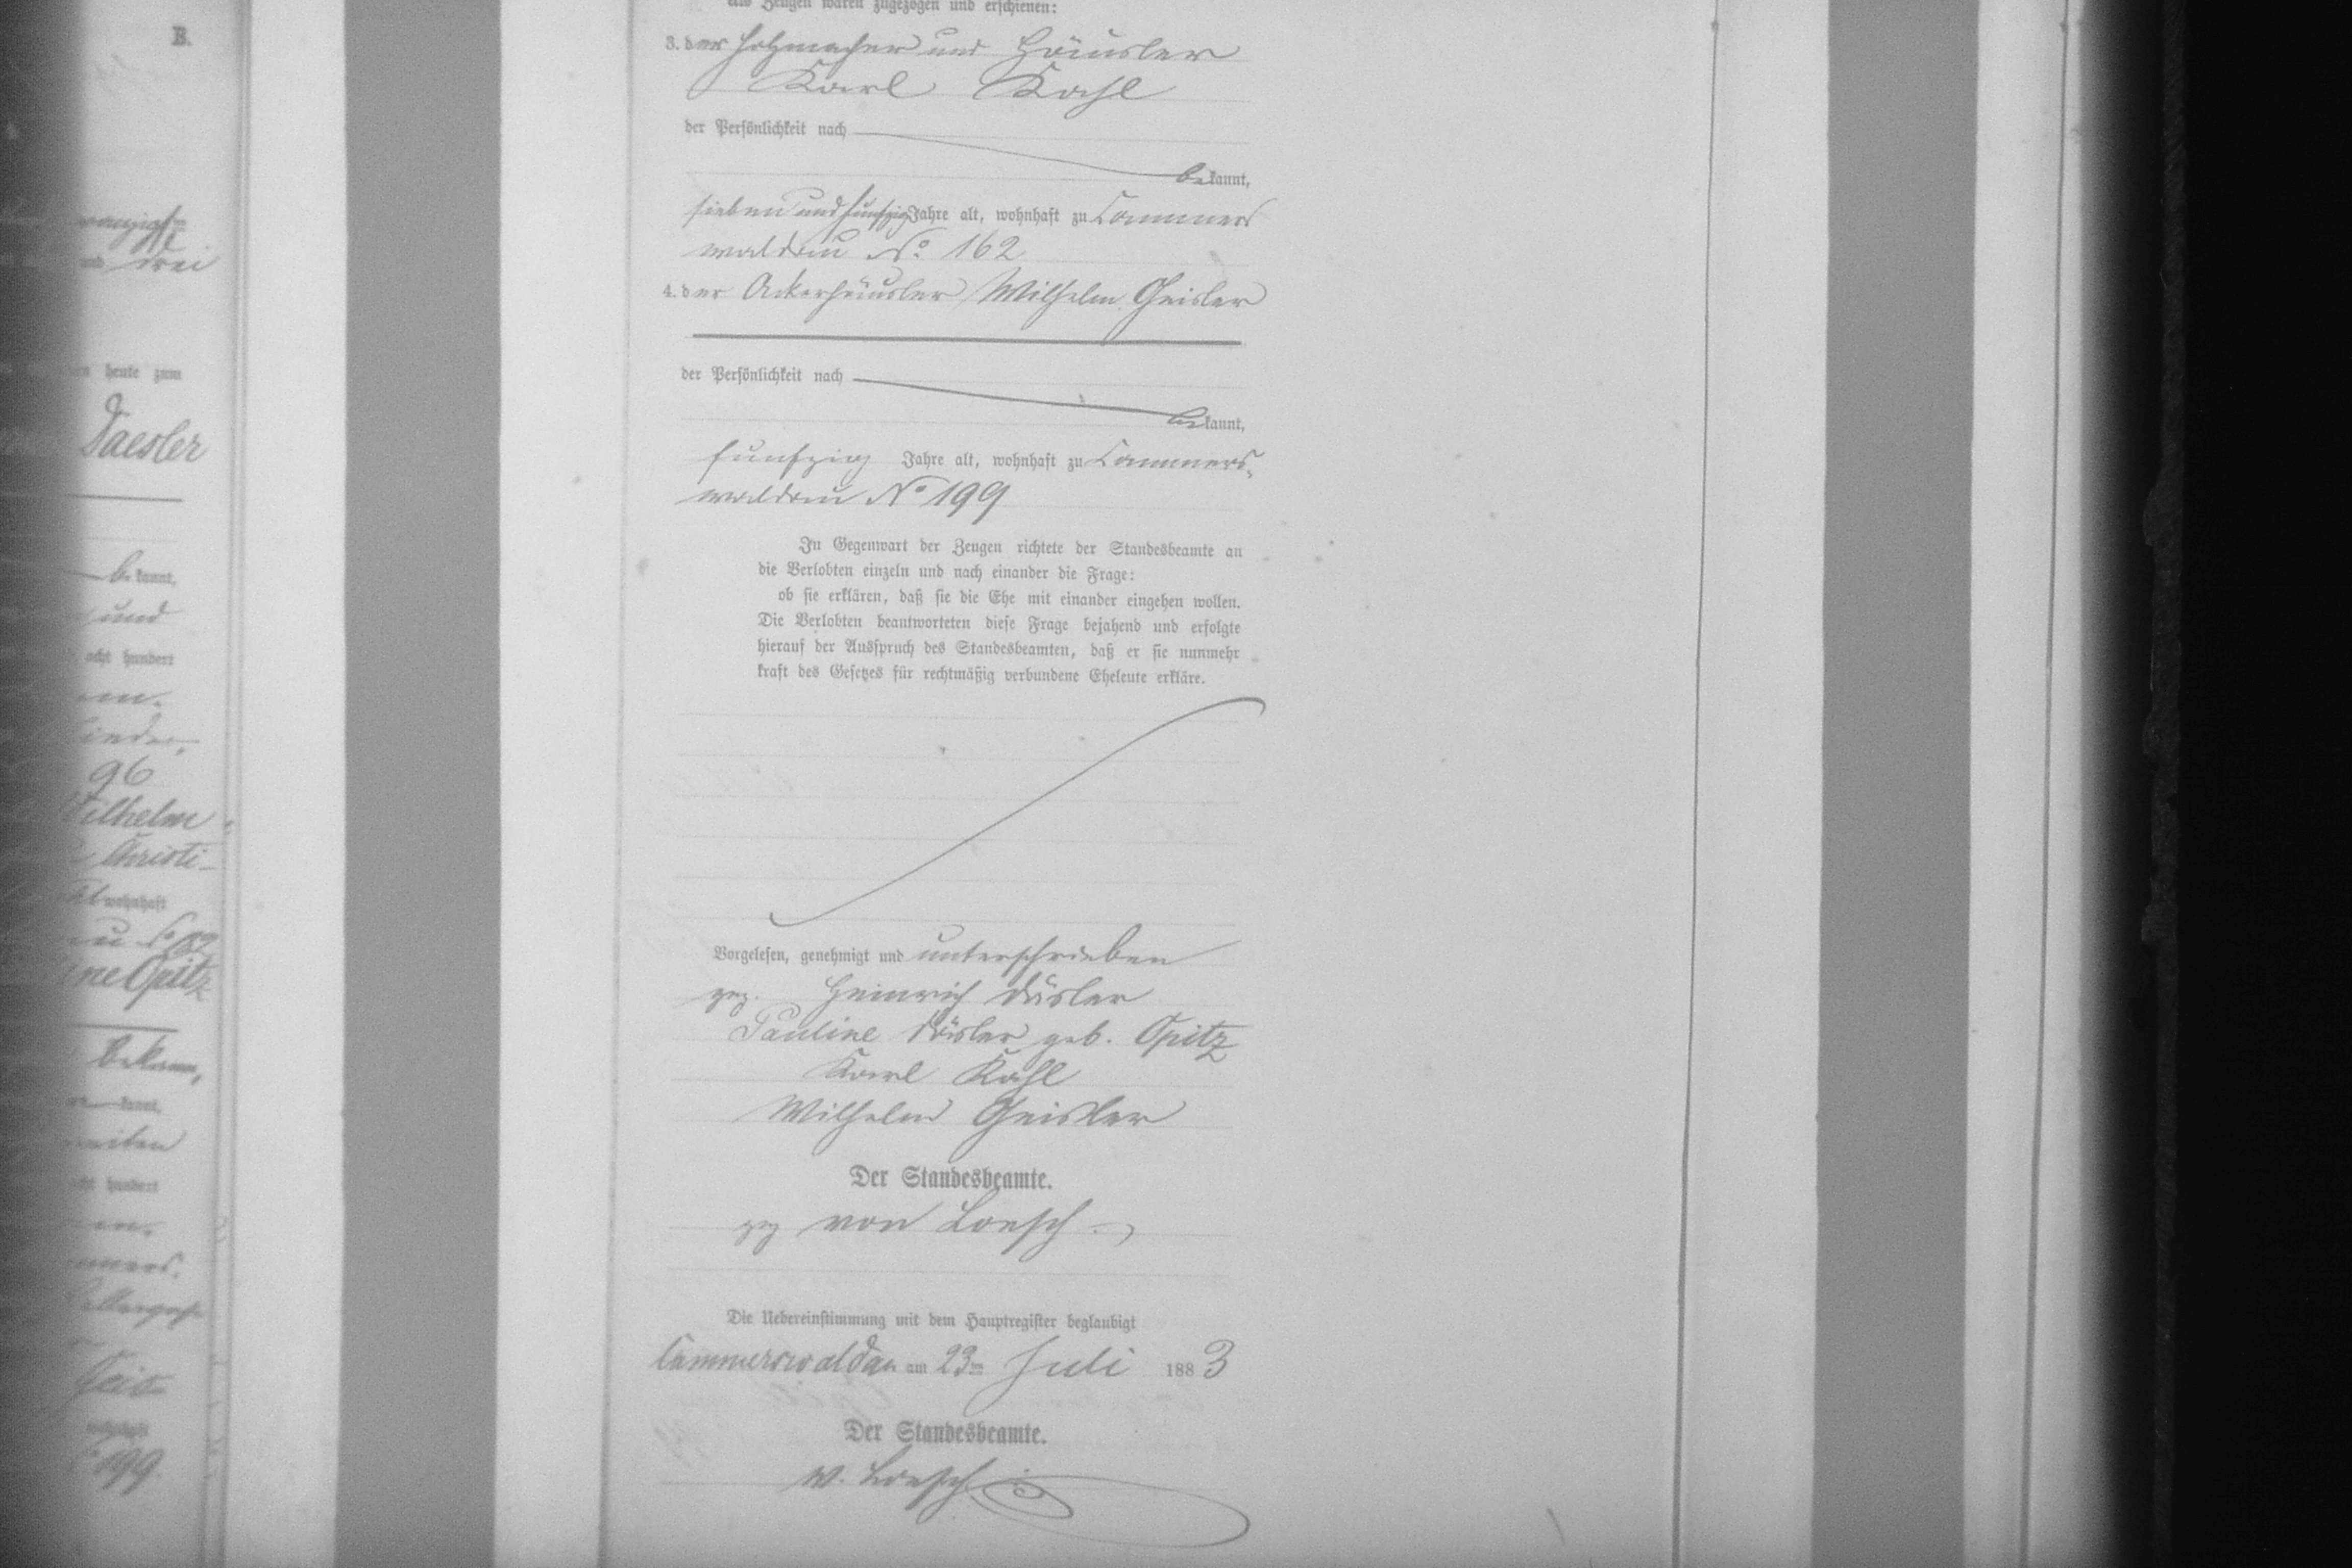 B.
drei
heute zum
Daesler
bekannt,
und
acht hundert
96
Wilhelm
Christi-
wohnhaft
Opitz
bekann,
kannt,
hundert
199.
als Zeugen waren zugezogen und erschienen:
3. der Holzmacher und Häusler
Karl Kahl
der Persönlichkeit nach
bekannt,
sieben und funfzig Jahre alt, wohnhaft zu Cammers
waldau No 162
4. der Ackerhäusler Wilhelm Geisler
der Persönlichkeit nach
bekannt,
funfzig Jahre alt, wohnhaft zu Cammers-
waldau No 199
In Gegenwart der Zeugen richtete der Standesbeamte an
die Verlobten einzeln und nach einander die Frage:
ob sie erklären, daß sie die Ehe mit einander eingehen wollen.
Die Verlobten beantworteten diese Frage bejahend und erfolgte
hierauf der Ausspruch des Standesbeamten, daß er sie nunmehr
kraft des Gesetzes für rechtmäßig verbundene Eheleute erkläre.
Vorgelesen, genehmigt und unterschrieben
gez. Heinrich Däsler
Pauline Däsler geb. Opitz
Karl Kahl
Wilhelm Geisler
Der Standesbeamte.
gez von Loesch.
Die Uebereinstimmung mit dem Hauptregister beglaubigt
Cammerswaldau am 23ten Juli 1883
Der Standesbeamte.
v. Loesch